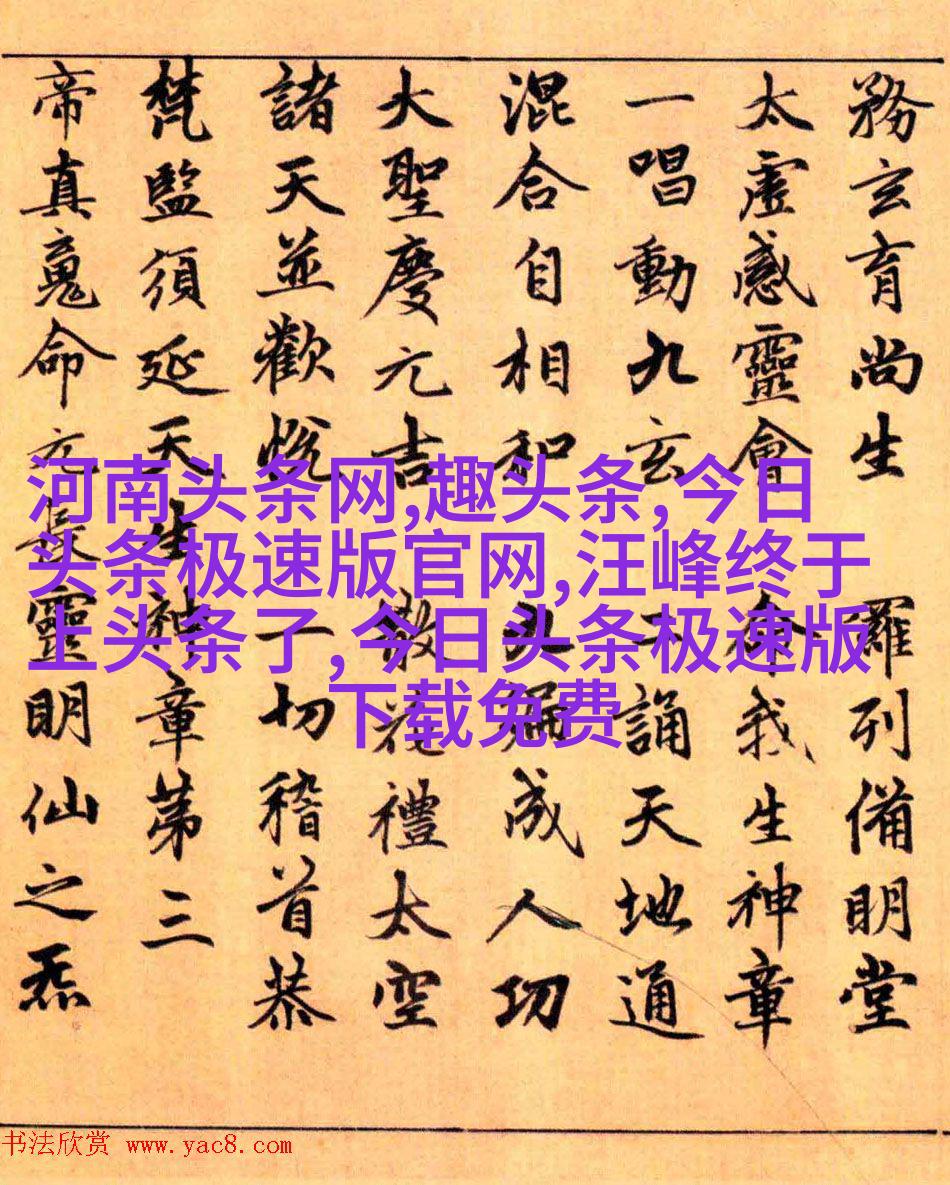 務玄育尚生 羅列備明堂
太虛感靈會 命我生神章
一唱動九玄 二誦天地通
混合自相和 九遍成人功
大聖慶元吉 散花禮太空
諸天並歡悅 一切稽首恭
梵監須延天生神章第三
帝真魂命元長靈明仙之炁
河南头条网,趣头条,今日
头条极速版官网,汪峰终于
上头条了,今日头条极速版
下载免费
书法欣赏 www.yac8.com